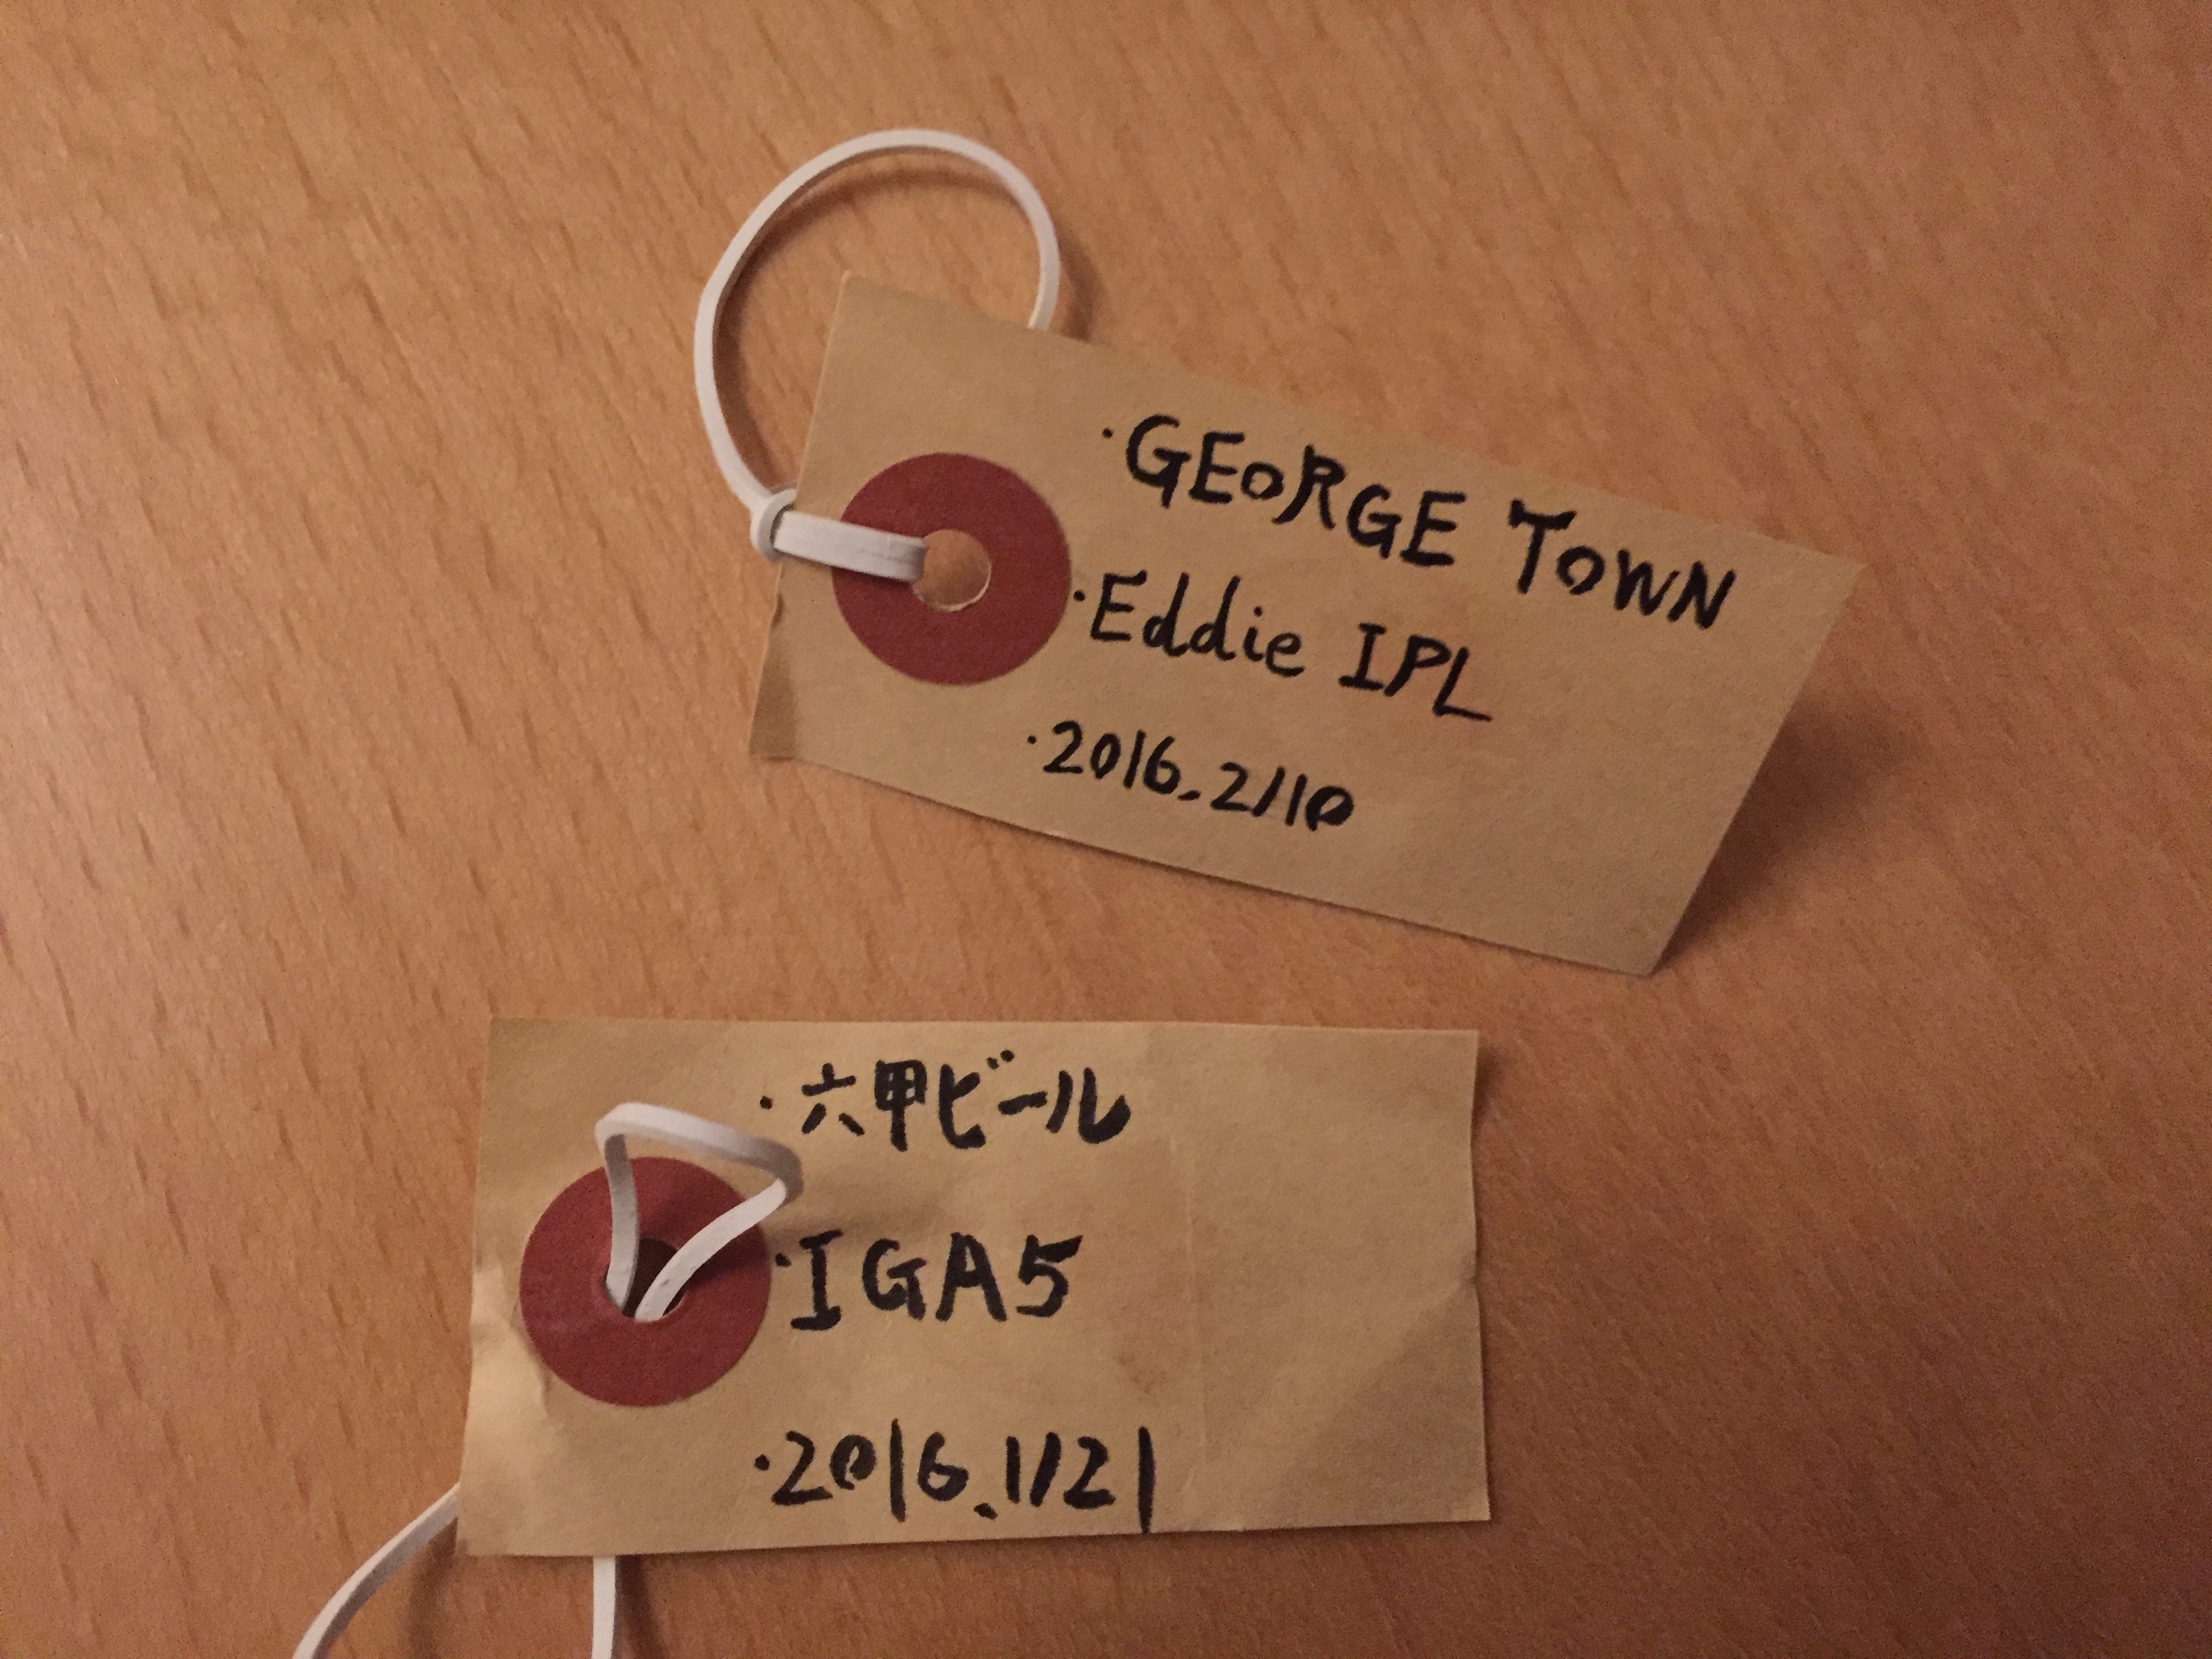 ・GEORGE TOWN
・Eddie IPL
・2016.2/10
・六甲ビール
・IGA5
・2016.1/21